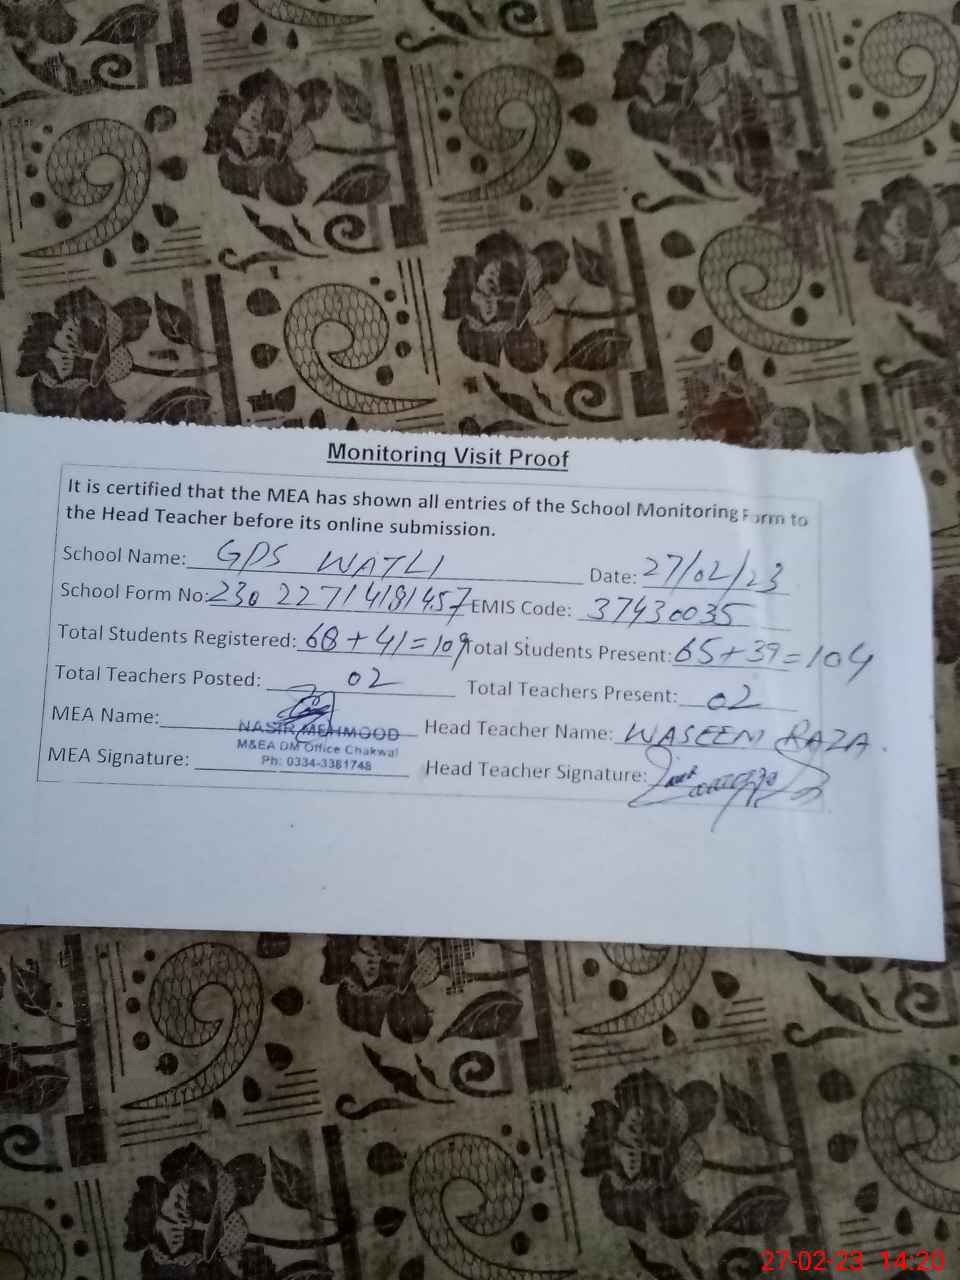 Monitoring Visit Proof
It is certified that the MEA has shown all entries of the School Monitoring Form to
the Head Teacher before its online submission.
School Name: GPS WATLI Date: 27/02/23
School Form No: 230 22714181457 EMIS Code: 37430035
Total Students Registered: 68 + 41 = 109 Total Students Present: 65 + 39 = 104
Total Teachers Posted: 02 Total Teachers Present: 02
MEA Name: NASIR MEHMOOD Head Teacher Name: WASEEM RAZA.
M&EA DM Office Chakwal
MEA Signature: Ph: 0334-3381748 Head Teacher Signature:
27-02-23 14:20